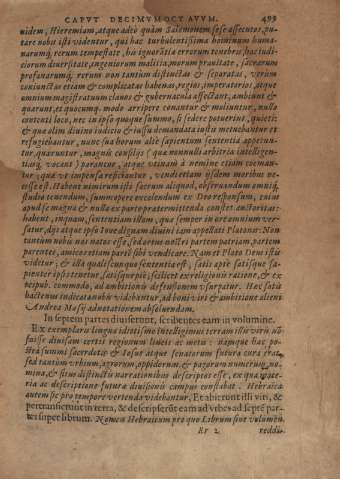 CAPVT DECIMVMOCTAVVM. 499
uidem, Hieremiam, atque adeò quàm Salomonem sese assecutor, pu-
tare nobis isti videntur, qui hac turbulentissima hominum huma-
narumq́; rerum tempestate, hac ignorātia errorum tenebris, hac iudi-
ciorum diuersitate, ingeniorum malitia, morum prauitate, sacrarum
profanarumq́; rerum non tantùm distinctas & separatas, verùm
coniunctas etiam & complicatas habenas, regias, imperatorias, atque
omnium magistratuum clauos & gubernacula affectant, ambiunt &
quærunt, & quocumq́; modo arripere conantur & moliuntur, nulla
contenti loco, nec in ipso quoque summo, si sedere potuerint, quieti:
& quæ olim diuino iudicio & iussu demandata iusti metuebantur et
refugiebantur, nunc sua horum aliò sapientum sententia appetun-
tur, quæruntur, magnis consilijs (quæ nonnullis arbitria intelligen-
tiæq́; vocant) parantur, atque vtinam à nemine etiam coeman-
tur, quæ vt impensa resarciant, vendi etiam ijsdem moribus ne-
cesse est. Habent nimirum isti sacrum aliquod, obseruandum omniq́;
studio tenendum, summopere excolendum ex Deo responsum, cuius
apud se magna & nulla ex parte prætermittenda constet auctoritas:
habent, inquam, sententiam illam, quæ semper in ore omnium ver-
satur, dijs atque ipso Ioue dignam diuini iam appellati Platonis: Non
tantùm nobis nos natos esse, sed ortus nostri partem patriam, partem
parentes, amicos etiam partē sibi vendicare. Nam et Plato Deus istis
videtur, & illa quasi cuiusque sententia est, satis apte satisque sa-
pienter ipsis tenetur, satis superq́; scilicet ex religionis ratione, & ex
reipub. commodo, ad ambitionis defensionem vsurpatur. Hæc satis
hactenus indicata nobis videbantur, ad boni viri & ambitione alieni
Andreæ Masij adnotationem absoluendam.
In septem partes diuiserunt, scribentes eam in volumine.
Ex exemplaris linguæ idiotismo intelligimus terram illis viris nō
fuisse diuisam certis regionum lineis ac metis: namque hæc po-
steà summi sacerdotis & Iosuæ atque senatorum futura cura erat,
sed tantùm vrbium, agrorum, oppidorum, & pagorum numerum, no-
mina, & situs distinctis narrationibus descriptos esse, ex qua mate-
ria ac descriptione futura diuisionis campus constabat. Hebraica
autem sic pro tempore vertenda videbantur. Et abierunt illi viri, &
pertransierunt in terra, & descripserūt eam ad vrbes ad septē par-
tes super librum. Nomen Hebraicum pro quo Librum siue volumen
Rr 2 reddi-